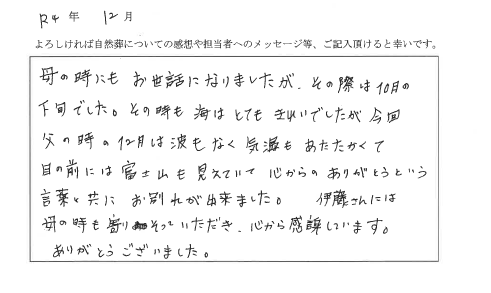 R4 年 12 月
よろしければ自然葬についての感想や担当者へのメッセージ等、ご記入頂けると幸いです。
母の時にも お世話になりましたが、その際は10月の
下旬でした。その時も 海は とても きれいでしたが 今回
父の時の12月は波もなく 気温も あたたかくて
目の前には 富士山も 見えていて 心からの ありがとうという
言葉と共に お別れが出来ました。 伊藤さんには
母の時も 寄りそっていただき、心から感謝しています。
ありがとうございました。